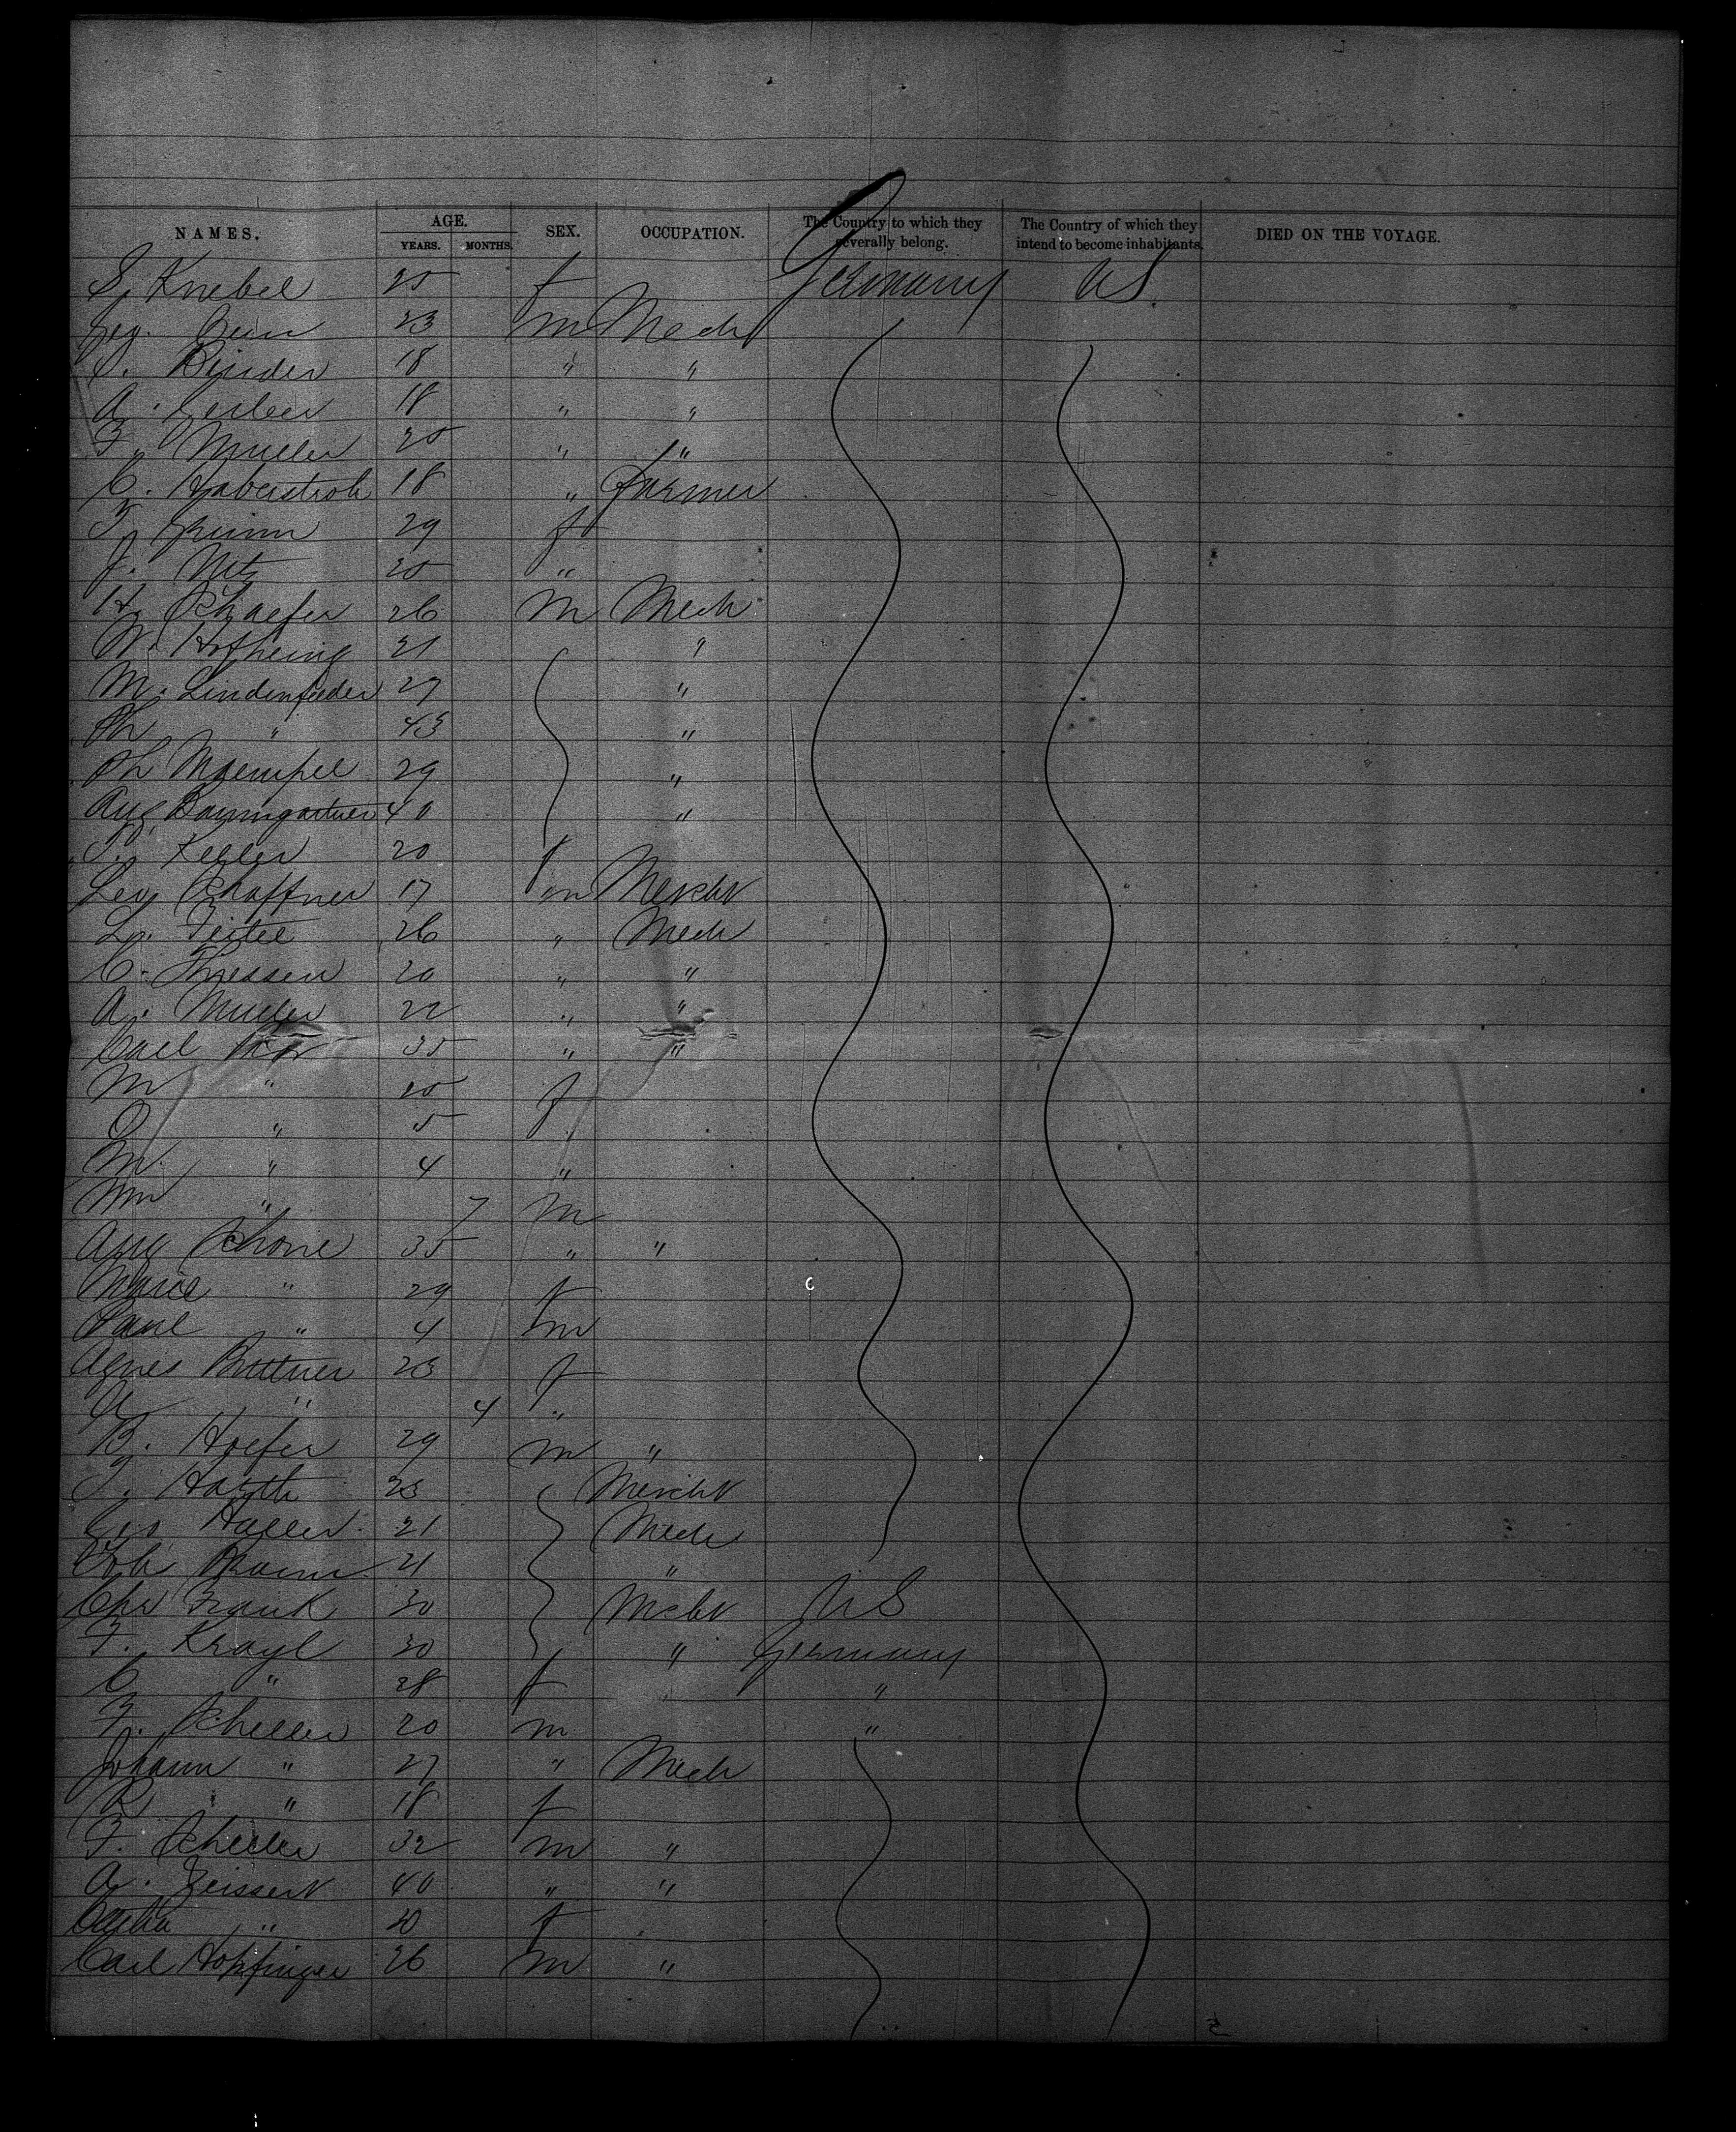 NAMES. AGE. YEARS. MONTHS. SEX. OCCUPATION. The Country to which they severally belong. The Country of which they intend to become inhabitants. DIED ON THE VOYAGE.
S. Knebel 25 f Germany U S.
23 m Mech
Binder 18 " "
A. Gerber 18 " "
F. Mueller 25 " "
C. Haberstroh 18 " Farmer
29 f
J. 20 "
H. Schaefer 26 m Mech
W. Hotheinz 21 "
M. Lindenfelder 27 "
Ph " 43 "
Ph Maempel 29 "
Aug Baumgartner 40 "
Keller 20 f
Leo Schaffner 17 m Mercht
L. 26 " Mech
C. Thessen 20 " "
A. Muller 22 " "
Carl 35 " "
M " 25 f
" 5 "
M. " 4 "
Wm " 7 m
Aug Schone 35 " "
Marie " 29 f
Paul " 4 m
Agnes Buttner 23 f
" 4 "
B. Hoefer 29 m "
Harth 23 Mercht
Geo Haller 21 Mech
21 "
Chr Frank 30 Mcht U S
F. Krayl 30 " Germany
C " 28 f "
F. Scheller 20 m "
Johann " 27 " Mech
R " 18 f
F. Scheller 32 m "
A. Zeissert 40 " "
" f
Carl Hopfinger 26 m "